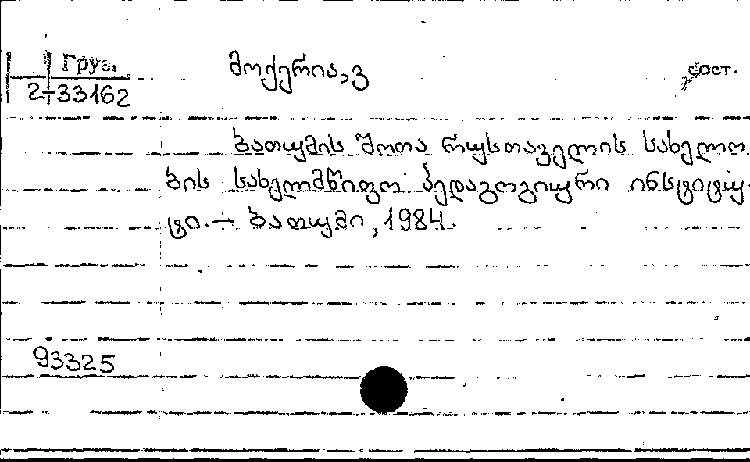 Груз.
2-33162
მოქერია,ვ
сост.
ბათუმის შოთა რუსთაველის სახელო
ბის სახელმწიფო პედაგოგიური ინსტიტუ-
ტი. — ბათუმი, 1984.
93325